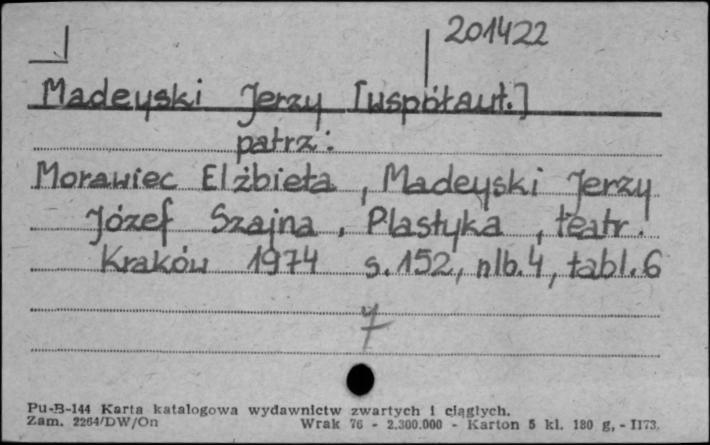 201422
Madeyski Jerzy [współaut.]
patrz:
Morawiec Elżbieta, Madeyski Jerzy
Józef Szajna, Plastyka, teatr.
Kraków 1974 s. 152, nlb. 4, tabl. 6
7
Pu-B-144 Karta katalogowa wydawnictw zwartych i ciągłych.
Zam. 2264/DW/On Wrak 76 - 2.300.000 - Karton 5 kl. 180 g, - I173.